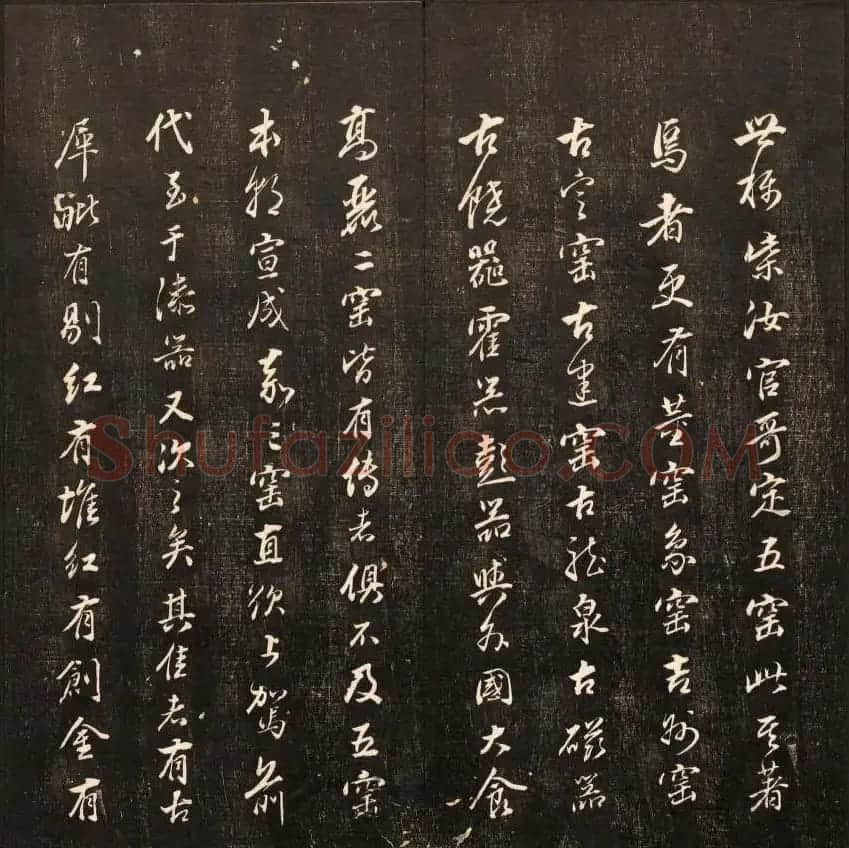 世称柴汝官哥定五窑此其著
焉者更有董窑象窑吉州窑
古定窑古建窑古龍泉古磁器
古饒器霍器彭器與外國大食
高麗二窑皆有傳者俱不及五窑
本朝宣成嘉之窑直欲上駕前
代至于漆器又次之矣其佳者有古
犀毗有剔紅有堆紅有創金有
Shufaziliao.COM